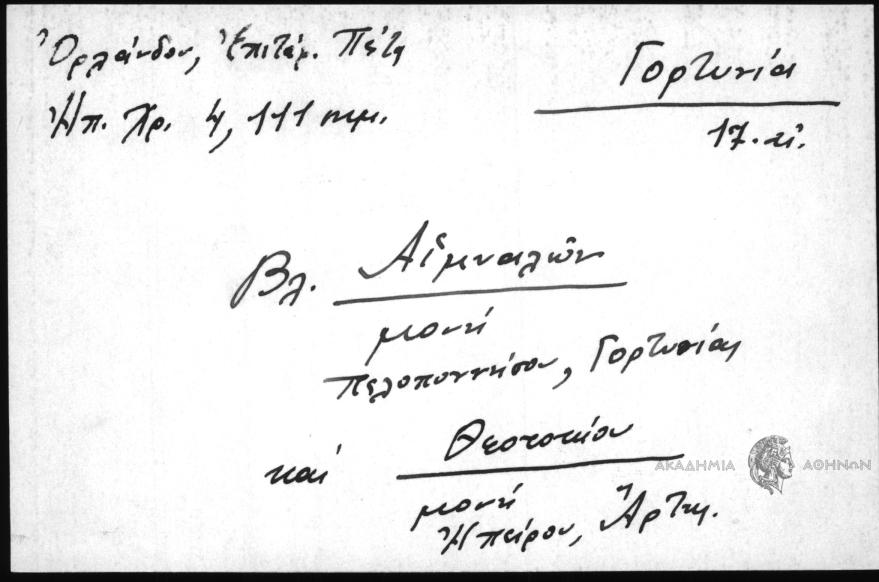 Ὀρλάνδου, Ἐπιτάφ. Πέτρ.
Ἠπ. Χρ. 4, 111 κἑμ.
Γορτυνία
17. αἰ.
Βλ. Αἰμυαλῶν
μονή
Πελοποννήσου, Γορτυνίας
καί Θεοτοκίου
μονή
Ἠπείρου, Ἄρτης.
ΑΚΑΔΗΜΙΑ ΑΘΗΝΩΝ